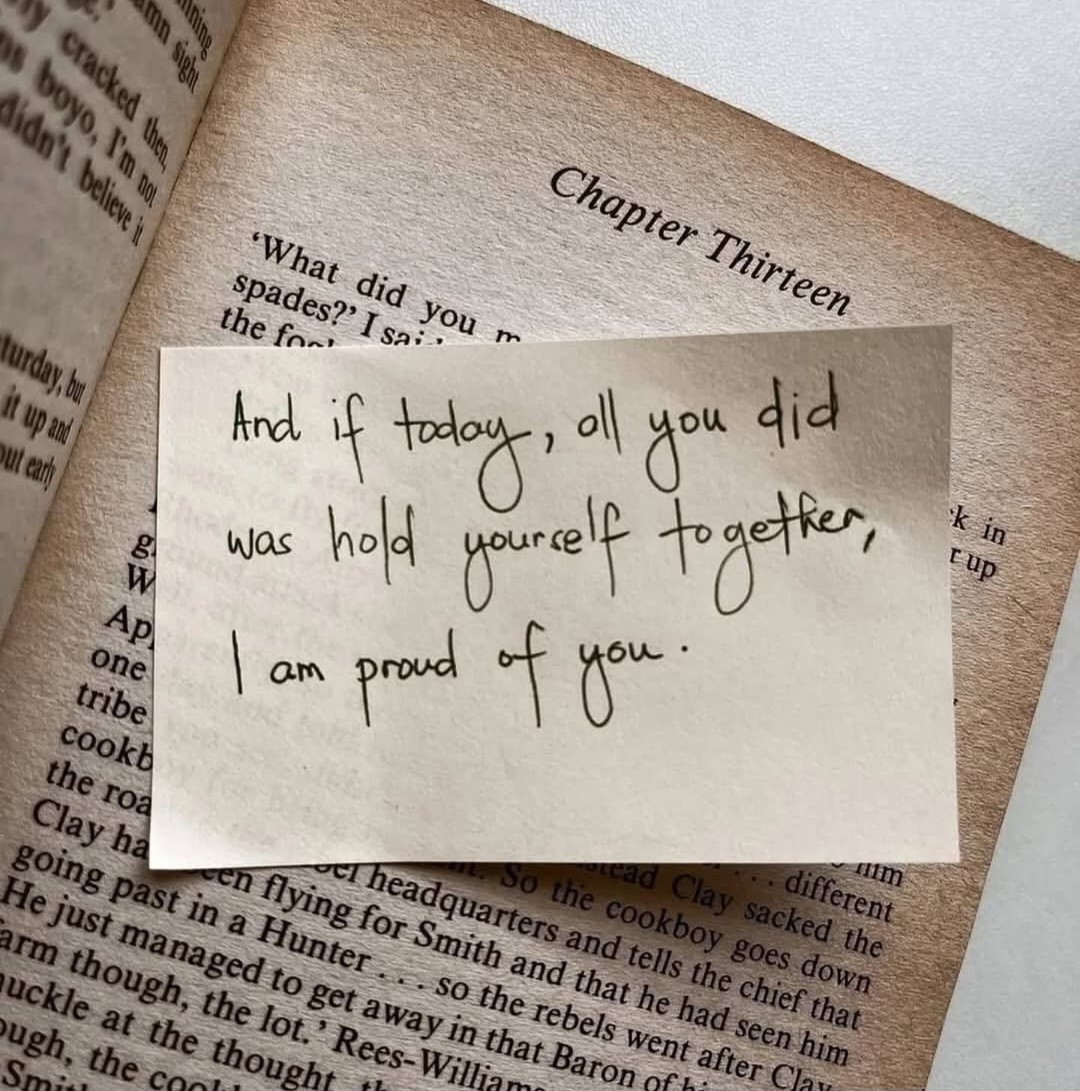 amn sight
cracked then,
boyo, I'm not
didn't believe it
turday, but
it up and
out early
Chapter Thirteen
‘What did you
spades?’ I sai
the foo
And if today, all you did
was hold yourself together,
I am proud of you.
k in
r up
g
W
Ap
one
tribe
cookb
the roa
him
different
Clay ha
stead Clay sacked the
So the cookboy goes down
going past in a Hunter . . . so the rebels went after Clay
een flying for Smith and that he had seen him
headquarters and tells the chief that
He just managed to get away in that Baron of
arm though, the lot.’ Rees-William
uckle at the thought
ough, the cool
Smit